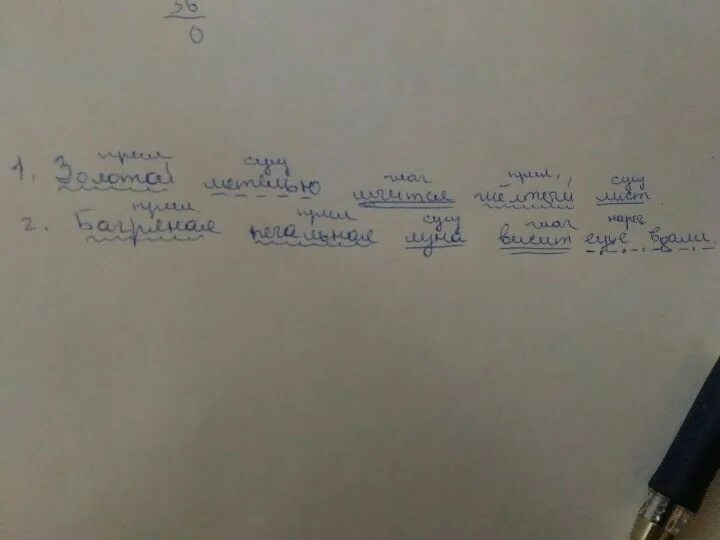 36
0
прил сущ глаг прил, сущ
1. Золотой метелью мчится жёлтый лист.
прил. прил сущ глаг нареч
2. Багряная печальная луна висит ещё вдали.